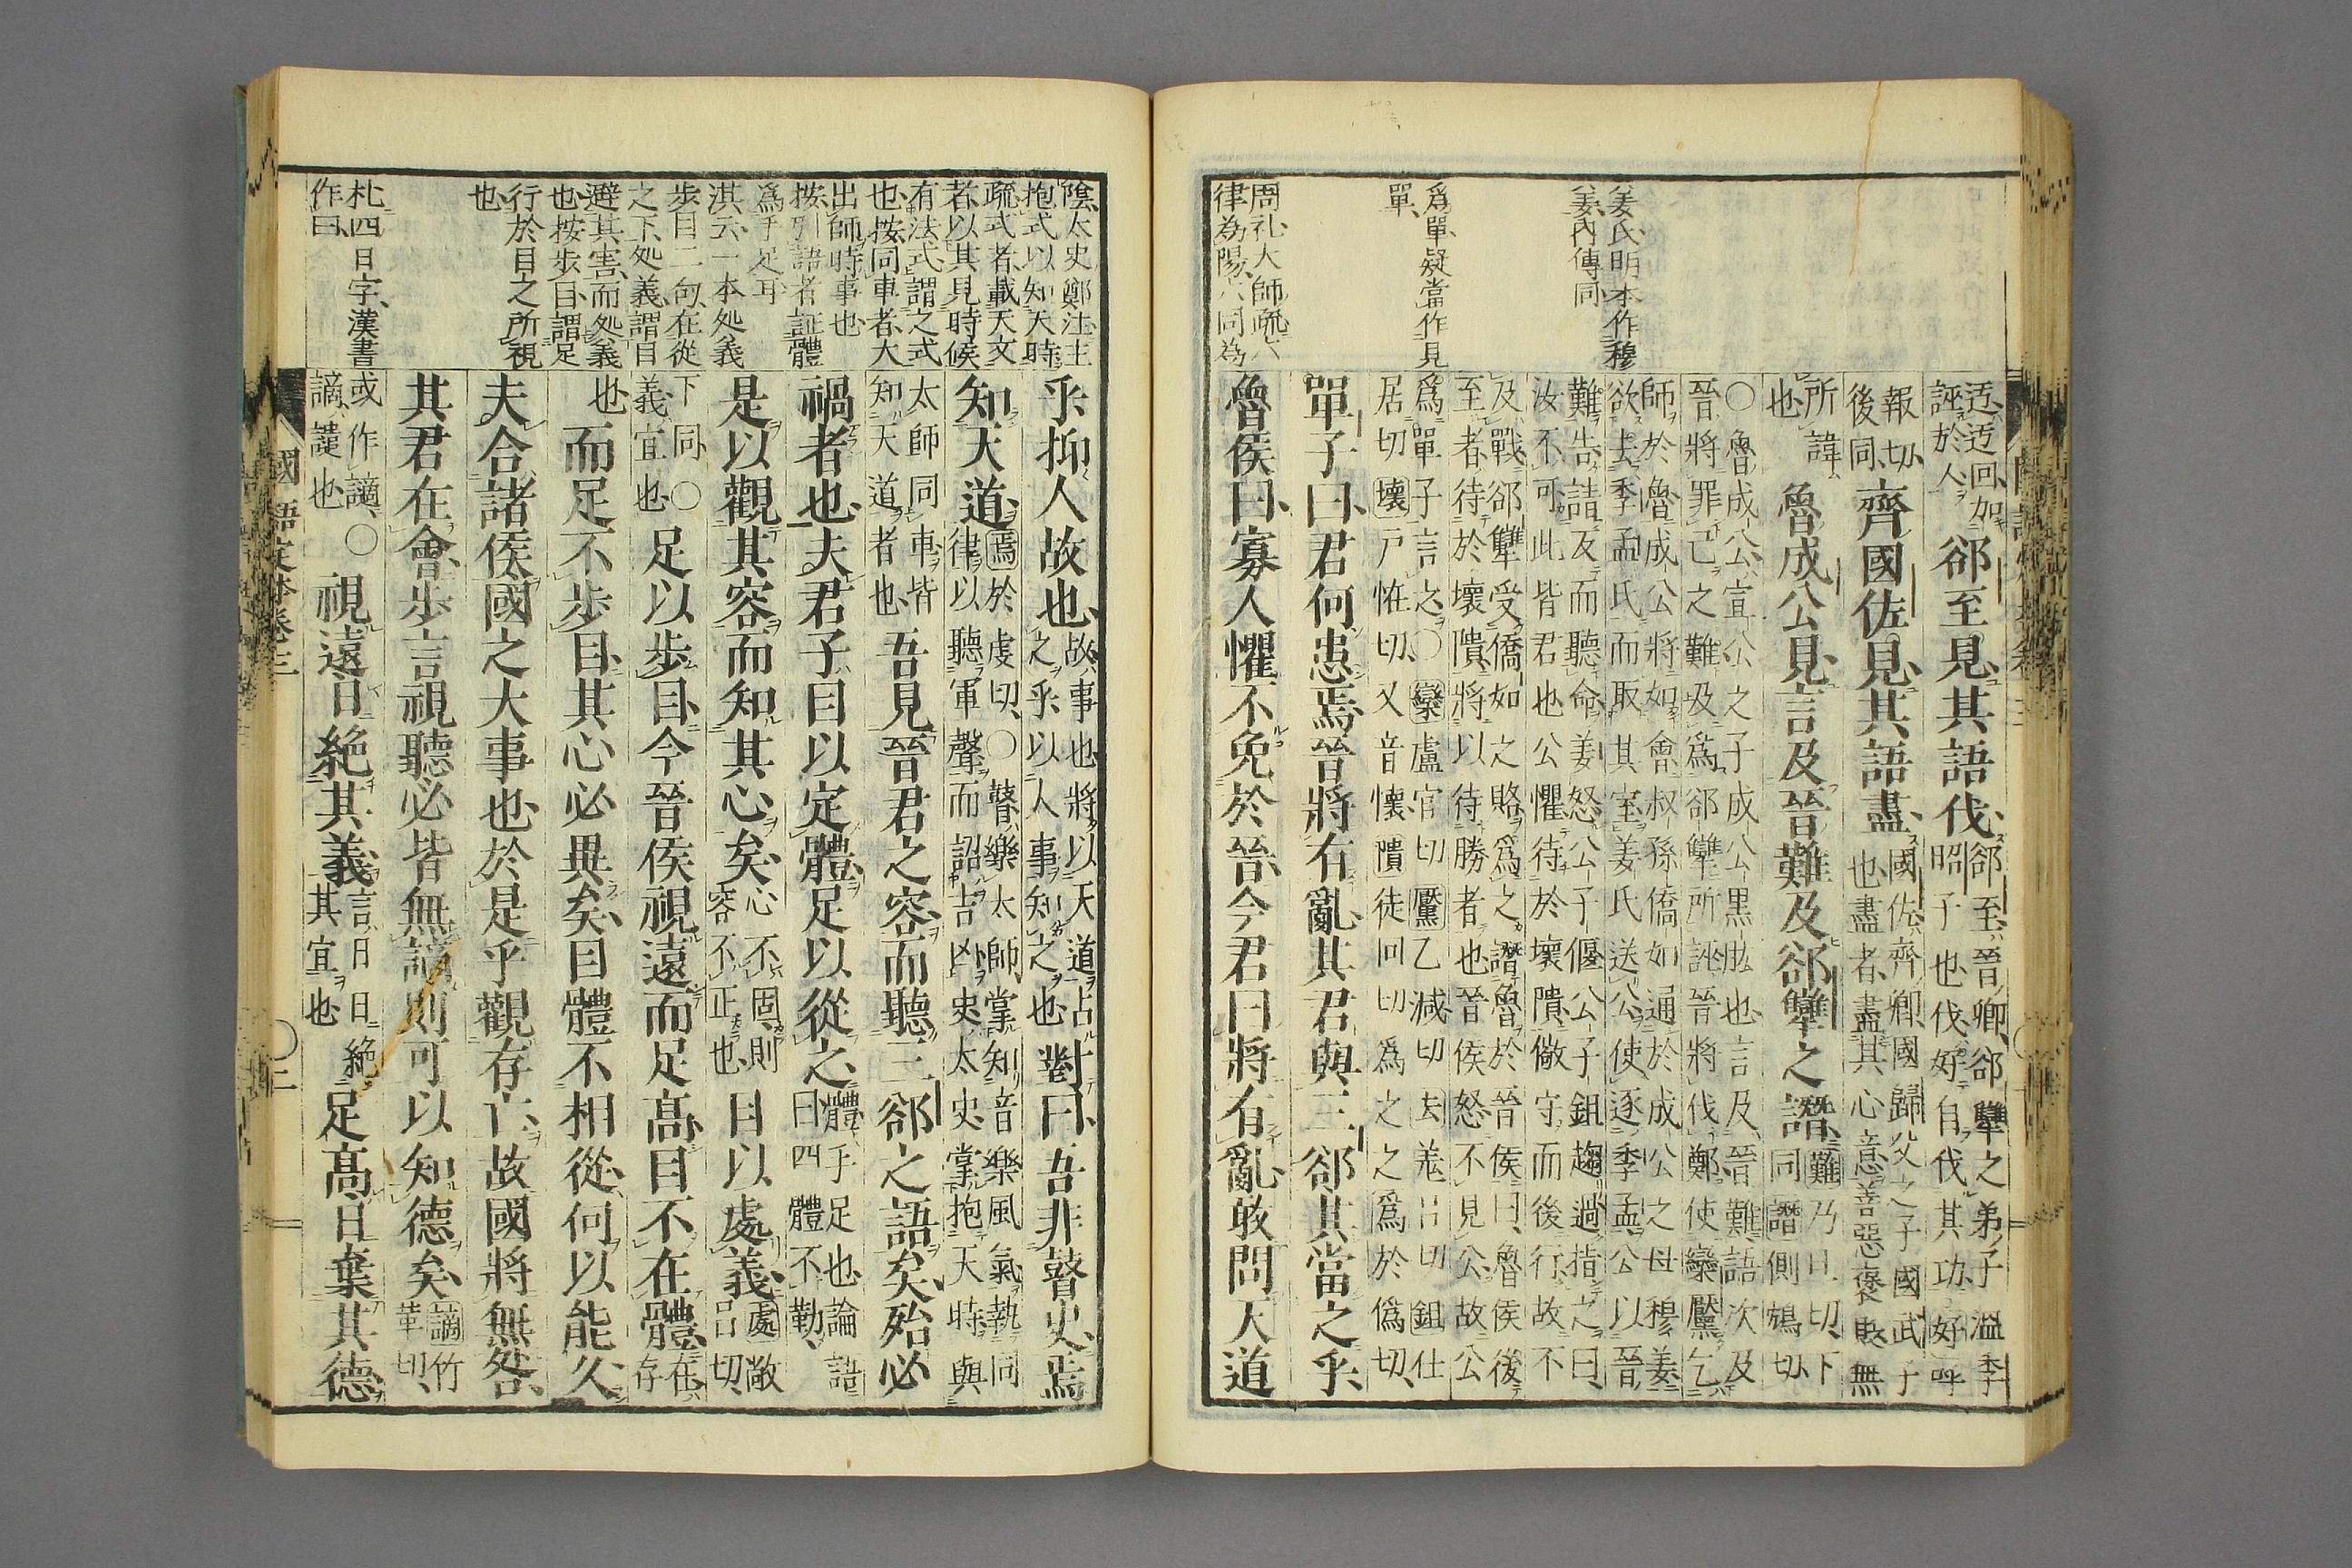 迃迃回、加
誣於人
郤至見其語伐、
郤至、晉卿、郤犨之弟子溫季
昭子也伐、好自伐其功、好呼
報切、
後同、
齊國佐見其語盡、
國佐、齊卿、國歸父之子國武子
也盡者、盡其心意善惡褒貶無
所諱
也、
魯成公見言及晉難及郤犨之譖、
難乃旦切、下
同譖側鴆切、
〇魯成公、宣公之子成公黑肱也言及晉難、語次及
晉將罪己之難、及爲郤犨所誣、晉將伐鄭、使欒黶乞
師於魯成公將如會叔孫僑如通於成公之母穆姜
欲去季孟氏而取其室、姜氏送公、使逐季孟、公以晉
難告、請反而聽命、姜怒公子偃公子鉏趨過指之曰、
汝不可、此皆君也公懼待於壞隤儆守、而後行、故不
及戰、郤犨受僑如之賂、爲之譖魯於晉侯曰、魯侯後
至者、待於壞隤、將以待勝者也、晉侯怒、不見公、故公
爲單子言之、〇欒盧官切黶乙減切去羗呂切鉏仕
居切壞戸恠切、又音懷隤徒回切爲之之爲於僞切、
單子曰、君何患焉晉將有亂其君與三郤其當之乎、
魯侯曰、寡人懼不免於晉、今君曰將有亂、敢問天道
姜氏明本作穆
姜、內傳同
爲單疑當作見
單、
周礼大師疏、六
律為陽、六同為
陰、太史鄭注主
抱式以知天時
疏式者、載天文
者、以其見時候
有法式、謂之式
也、按同車者、大
出師時事也
按、引語者証體
爲手足耳
淇云、一本処義
步目二句、在從
之下、処義、謂目
避其害、而処義
也、按步目、謂足
行於目之所視
也
朼四日字、漢書
作曰、
乎抑人故也、
故、事也將以天道占
之乎、以人事知之也
對曰、吾非瞽史、焉
知天道、
焉於虔切、〇瞽樂太師掌知音樂風氣、執同
律以聽軍聲、而詔吉凶、史、太史掌抱天時、與
太師同車、皆
知天道者也、
吾見晉君之容、而聽三郤之語矣、殆必
禍者也、夫君子目以定體、足以從之、
體手足也、論語
曰四體不勤、
是以觀其容而知其心矣、
心不固、則
容不正也、
目以處義、
處敞
呂切、
下同、〇
義、宜也
足以步目、今晉侯視遠而足高、目不在體、
在、
存
也
而足不步目、其心必異矣、目體不相從、何以能久、
夫合諸侯、國之大事也、於是乎觀存亡、故國將無咎、
其君在會、步言視聽必皆無謫、則可以知德矣、
謫竹
革切、
或作讁、〇
謫、譴也
視遠日絶其義、
言、日日絶
其宜也
足高、日棄其德、
國語定本卷三
〇二